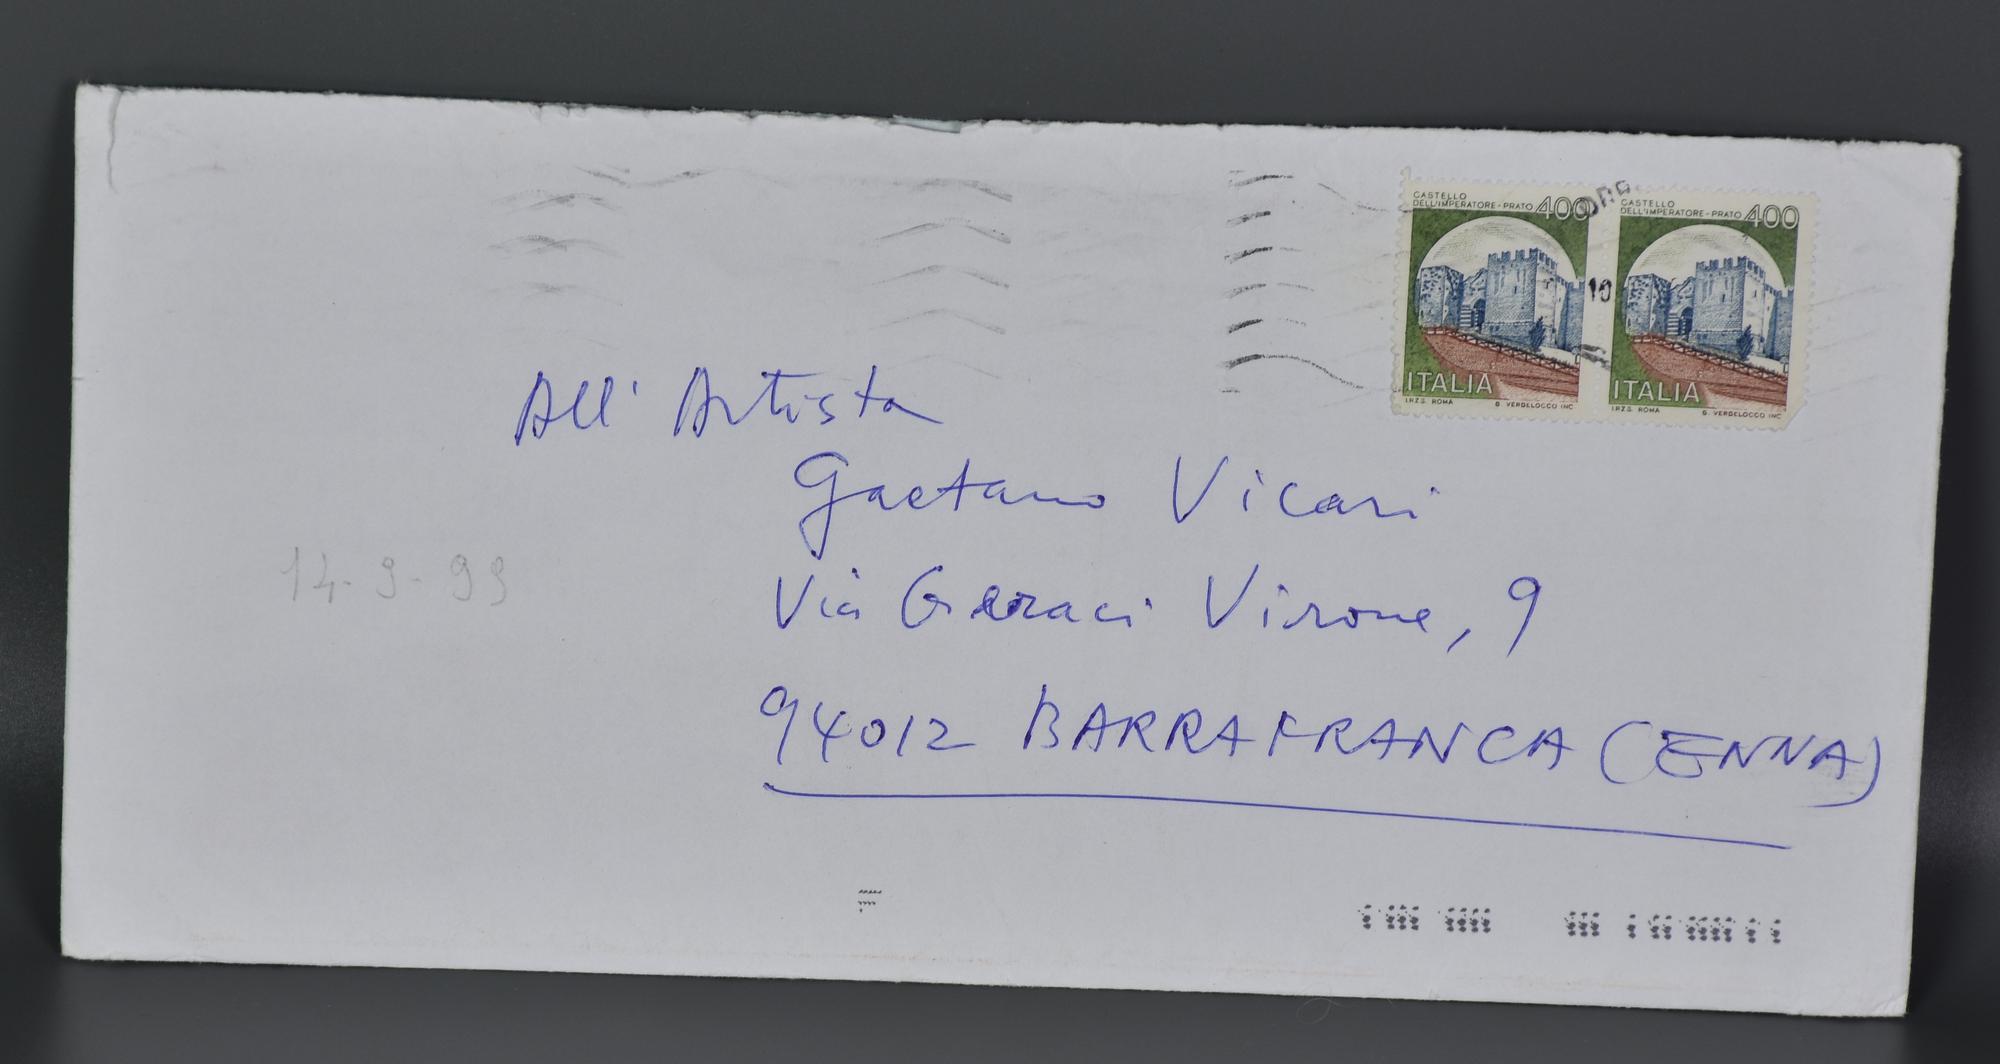 CASTELLO
DELL'IMPERATORE - PRATO 400
ITALIA
I.P.Z.S. ROMA G. VERDELOCCO INC
CASTELLO
DELL'IMPERATORE - PRATO 400
ITALIA
I.P.Z.S. ROMA G. VERDELOCCO INC
10
All' Artista
Gaetano Vicari
Via Geraci Virone, 9
94012 BARRAFRANCA (ENNA)
14-9-99